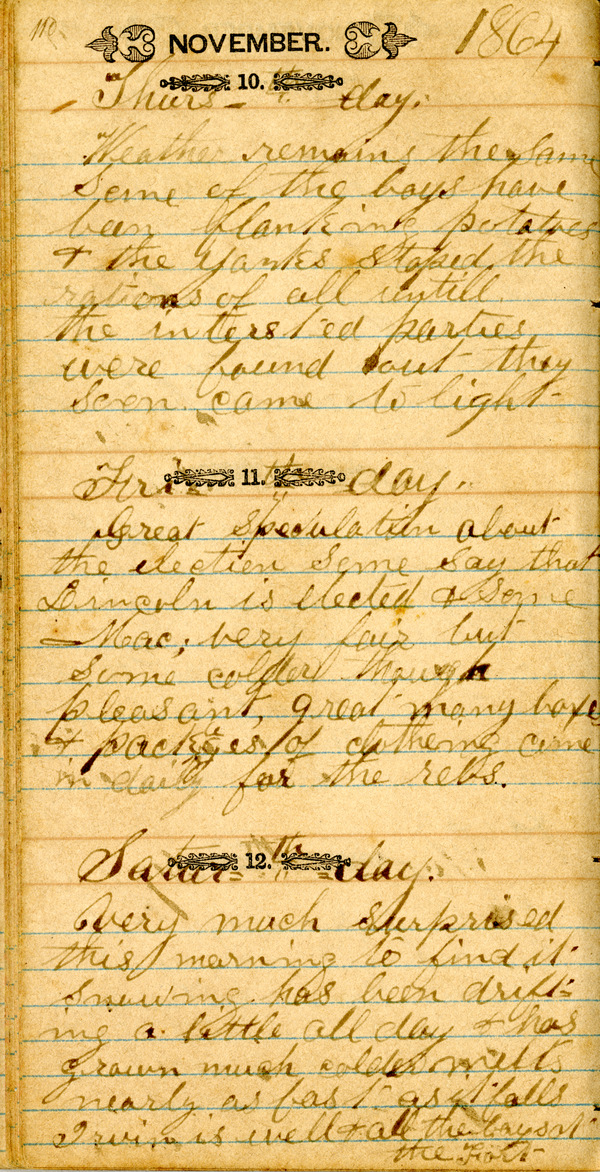 110.
NOVEMBER. 1864
Thurs- 10. th day.
Weather remains the same
Some of the boys have
been flanking potatoes
& the yanks stoped the
rations of all untill
the interst-ed parties
were found out they
soon came to light-
Fri= 11. th day.
Great speculation about
the election some say that
Lincoln is elected & some
Mac; very fair but
some colder though
pleasant, great many boxes
& packages of clotheing come
in daily for the rebs.
Satur= 12. th =day.
Very much surprised
this morning to find it
snowing has been drift=
ing a little all day & has
grown much colder melts
nearly as fast as it falls
Irvin is well & all the boys at
the Fort